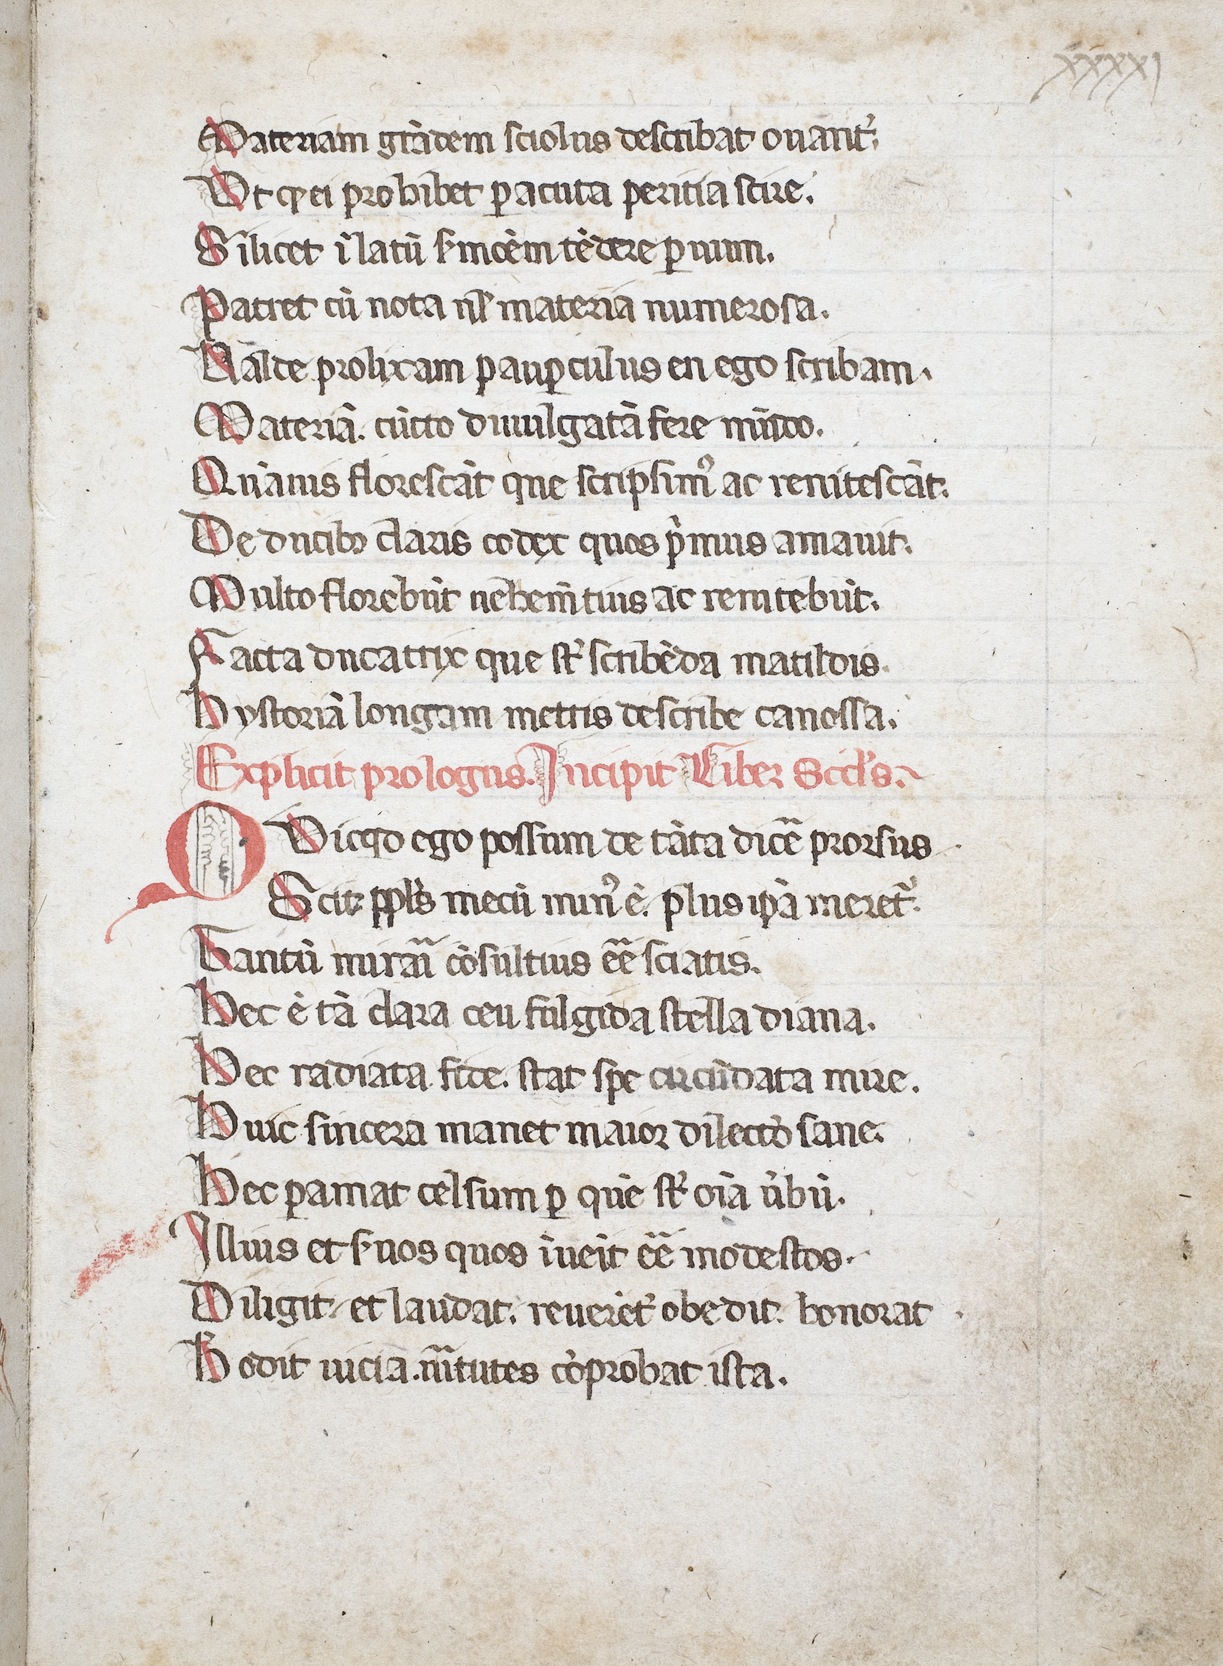 xxxxi
Materiam grādem sciolus describat ouant᷒.
Ut qͥ ei prohibet p̲acuta peritia scire.
Silicet ī latū ẜmōem tēdere p̲uium.
Patret cū nota nł materia numerosa.
Valde prolixam paup̲culus en ego scribam.
Materiā. cūcto diuulgatā fere mūdo.
Quāuis florescāt que scripsimꝰ ac renitescāt.
De ducibꝫ claris codex quos p̄mus amauit.
Multo florebūt ac renitebūt.
Facta ducatrix que st̄ scribēda matildis.
Hystoriā longam metris describe canossa.
Explicit prologus. Incipit Liber Scd̄s.
Q Dicqd ego possum de tāta dicē prorsus
Scit ppłs mecū minꝰ ē. plus ip̄a meret᷒.
Tantū mirari cōsultius eē sciatis.
Hec ē tā clara ceu fulgida stella diana.
Hec radiata fide. stat spe circūdata mire.
Huic sincera manet maior dilectō sane.
Hec p̲amat celsum p̲ quē st̄ oīa ūbū.
Illius et ẜuos quos īueit eē modestos.
Diligit. et laudat. reuerēt᷒ obedit. honorat
H odit uicia. uīrtutes cōprobat ista.